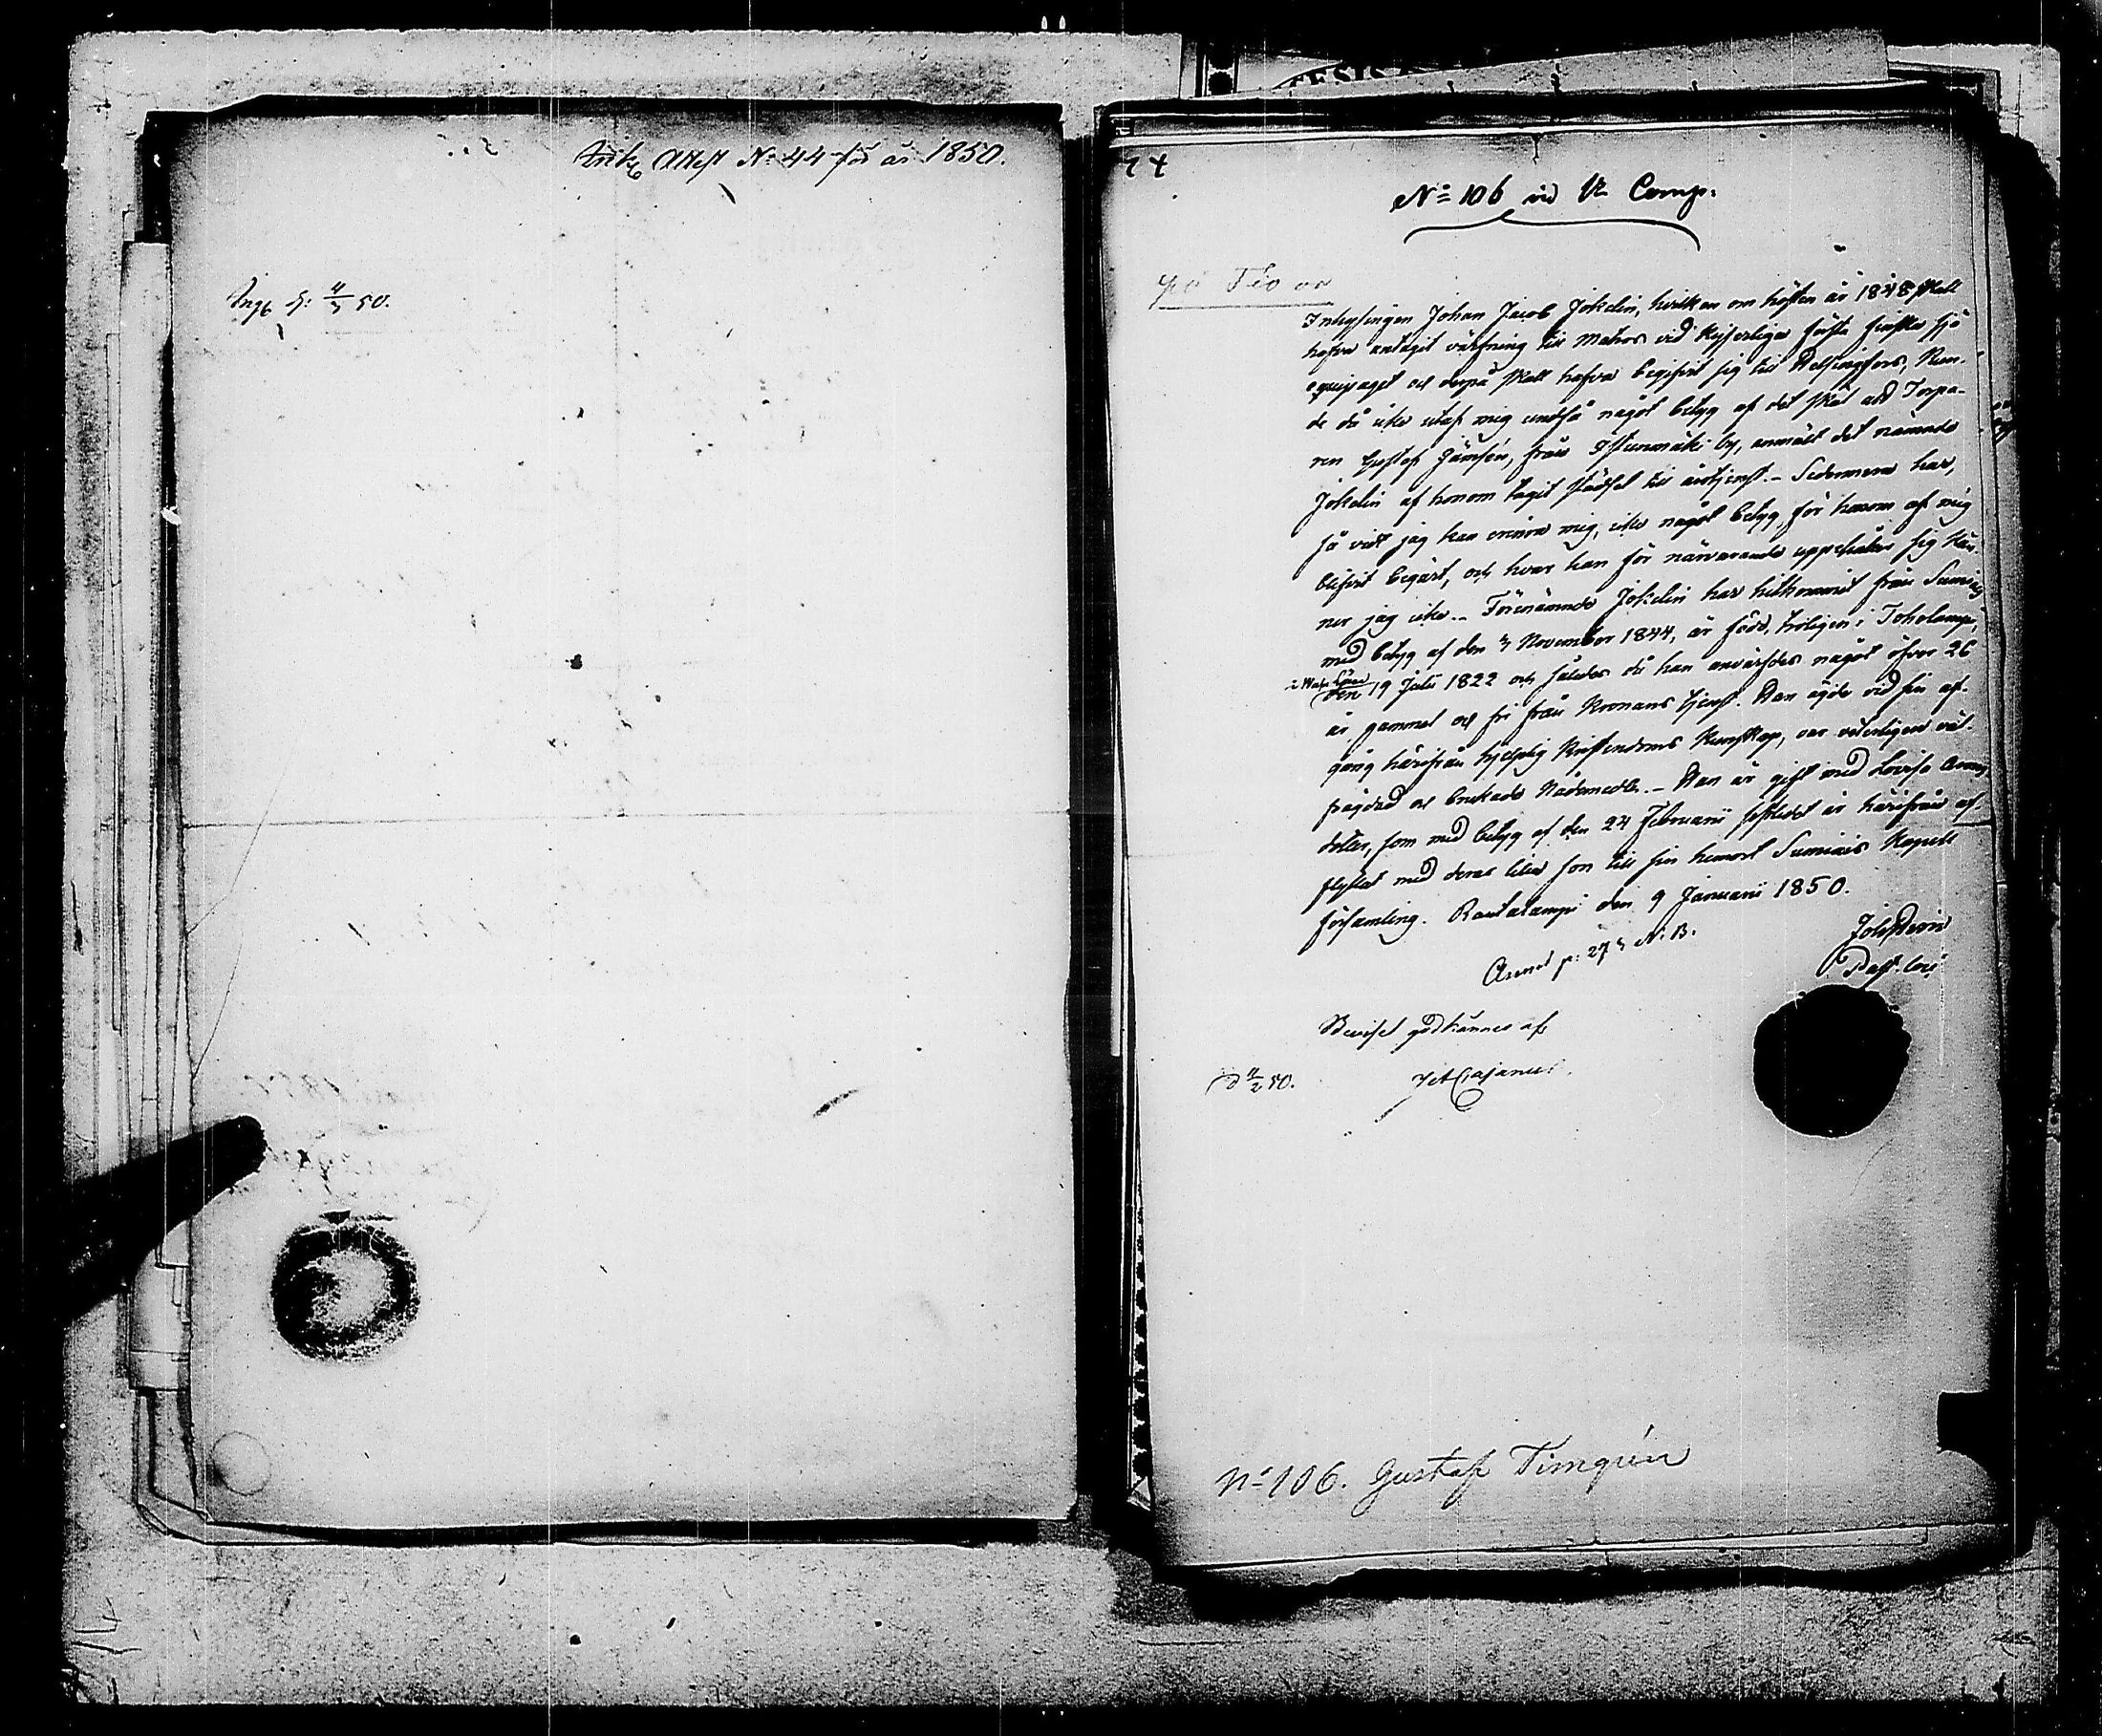 Attest N: 44 för år 1850.
50.
74
N:o 106 vid Comp:
på Tio år
Inhysingen Johan Jacob Jokelin, hvilken om hösten år 1848 skall
hafva antagit värfning till Matros vid Kejserliga första finska sjö
equipaget och derpå skall hafva begifvit sig till Helsingfors, kun-
de då icke utaf mig undfå något betyg af det skäl att Torpa-
ren Gustaf Jämsén, från by, anmält det nämnde
Jokelin af honom tagit städsel till årstjenst. - Sedermera har,
så vidt jag kan minna mig, icke något betyg för honom af mig
blifvit begärt, och hvar han för närvarande uppehåller sig kän-
ner jag icke. - Förenämnde Jokelin har hitkommit från Sumiais
med betyg af den 3 November 1844, är född, troligen i Toholampi,
i Wasa Län
den 19 Julii 1822 och således då han anvärfdes något öfver 26
år gammal och fri från Kronans tjenst. Han ägde vid sin af-
gång härifrån hjelplig Kristendoms Kunskap, var veterligen väl-
frägdad och brukade Nådemedlen. - Han är gift med Lovisa
dotter, som med betyg af den 24 Februarii sistledet år härifrån af-
flyttat med deras lilla son till sin hemort Sumiais Kapell
församling. Rautalampi den 9 Januarii 1850.
N: 13.
Past.
Beviset godkännes af
50.
Cajanus.
N:o 106. Gustaf Timgrén